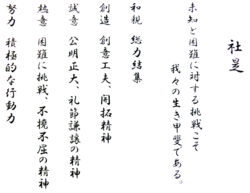 社是
未知と困難に対する挑戦こそ
我々の生き甲斐である。
和親 総力結集
創造 創意工夫、開拓精神
誠意 公明正大、礼節謙譲の精神
熱意 困難に挑戦、不撓不屈の精神
努力 積極的な行動力